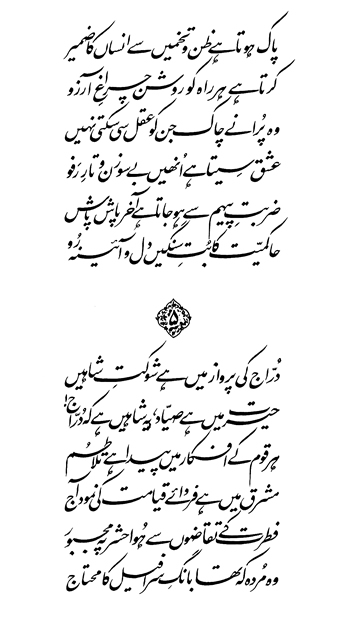 پاک ہوتا ہے ظن و تخمیں سے انساں کا ضمیر
کرتا ہے ہر راہ کو روشن چراغِ آرزو
وہ پُرانے چاک جن کو عقل سی سکتی نہیں
عشق سیتا ہے اُنھیں بے سوزن و تارِ رفو
ضربتِ پیہم سے ہو جاتا ہے آخر پاش پاش
حاکمیّت کا بُتِ سنگیں دل و آئینہ رُو
۵
دُرّاج کی پرواز میں ہے شوکتِ شاہیں
حیرت میں ہے صیّاد، یہ شاہیں ہے کہ دُرّاج!
ہر قوم کے افکار میں پیدا ہے تلاطُم
مشرق میں ہے فردائے قیامت کی نمود آج
فطرت کے تقاضوں سے ہُوا حشر پہ مجبور
وہ مُردہ کہ تھا بانگِ سرافیل کا محتاج